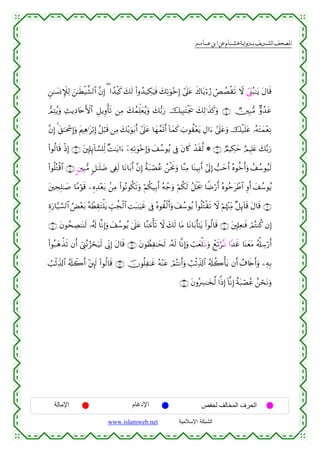 المصحف الشريف برواية هشام عن ابن عامر
قَالَ يَٰبُنَيِّ لَا تَقْصُصْ رُءْيَاكَ عَلَىٰٓ إِخْوَتِكَ فَيَكِيدُوا۟ لَكَ كَيْدًا ۖ إِنَّ ٱلشَّيْطَٰنَ لِلْإِنسَٰنِ
عَدُوٌّ مُّبِينٌ ۝ وَكَذَٰلِكَ يَجْتَبِيكَ رَبُّكَ وَيُعَلِّمُكَ مِن تَأْوِيلِ ٱلْأَحَادِيثِ وَيُتِمُّ
نِعْمَتَهُۥ عَلَيْكَ وَعَلَىٰٓ ءَالِ يَعْقُوبَ كَمَآ أَتَمَّهَا عَلَىٰٓ أَبَوَيْكَ مِن قَبْلُ إِبْرَٰهِيمَ وَإِسْحَٰقَ ۚ إِنَّ
رَبَّكَ عَلِيمٌ حَكِيمٌ ۝ * لَّقَدْ كَانَ فِى يُوسُفَ وَإِخْوَتِهِۦٓ ءَايَٰتٌ لِّلسَّآئِلِينَ ۝ إِذْ قَالُوا۟
لَيُوسُفُ وَأَخُوهُ أَحَبُّ إِلَىٰٓ أَبِينَا مِنَّا وَنَحْنُ عُصْبَةٌ إِنَّ أَبَانَا لَفِى ضَلَٰلٍ مُّبِينٍ ۝ ٱقْتُلُوا۟
يُوسُفَ أَوِ ٱطْرَحُوهُ أَرْضًا يَخْلُ لَكُمْ وَجْهُ أَبِيكُمْ وَتَكُونُوا۟ مِنۢ بَعْدِهِۦ قَوْمًا صَٰلِحِينَ
۝ قَالَ قَآئِلٌ مِّنْهُمْ لَا تَقْتُلُوا۟ يُوسُفَ وَأَلْقُوهُ فِى غَيَٰبَتِ ٱلْجُبِّ يَلْتَقِطْهُ بَعْضُ ٱلسَّيَّارَةِ
إِن كُنتُمْ فَٰعِلِينَ ۝ قَالُوا۟ يَٰٓأَبَانَا مَا لَكَ لَا تَأْمَ۫نَّا عَلَىٰ يُوسُفَ وَإِنَّا لَهُۥ لَنَٰصِحُونَ ۝
أَرْسِلْهُ مَعَنَا غَدًا نَرْتَعْ وَنَلْعَبْ وَإِنَّا لَهُۥ لَحَٰفِظُونَ ۝ قَالَ إِنِّى لَيَحْزُنُنِىٓ أَن تَذْهَبُوا۟
بِهِۦ وَأَخَافُ أَن يَأْكُلَهُ ٱلذِّئْبُ وَأَنتُمْ عَنْهُ غَٰفِلُونَ ۝ قَالُوا۟ لَئِنْ أَكَلَهُ ٱلذِّئْبُ
وَنَحْنُ عُصْبَةٌ إِنَّآ إِذًا لَّخَٰسِرُونَ ۝
الحرف المخالف لحفص الإدغام الإمالة
الشبكة الإسلامية www.islamweb.net